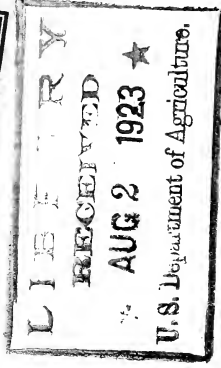 LIBRARY
RECEIVED
AUG 2 1923 ★
U.S. Department of Agriculture.